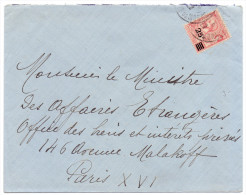 Monsieur le Ministre
Des Affaires Etrangères
Office des biens et interets privés
146 Avenue Malakoff
Paris XVI
25